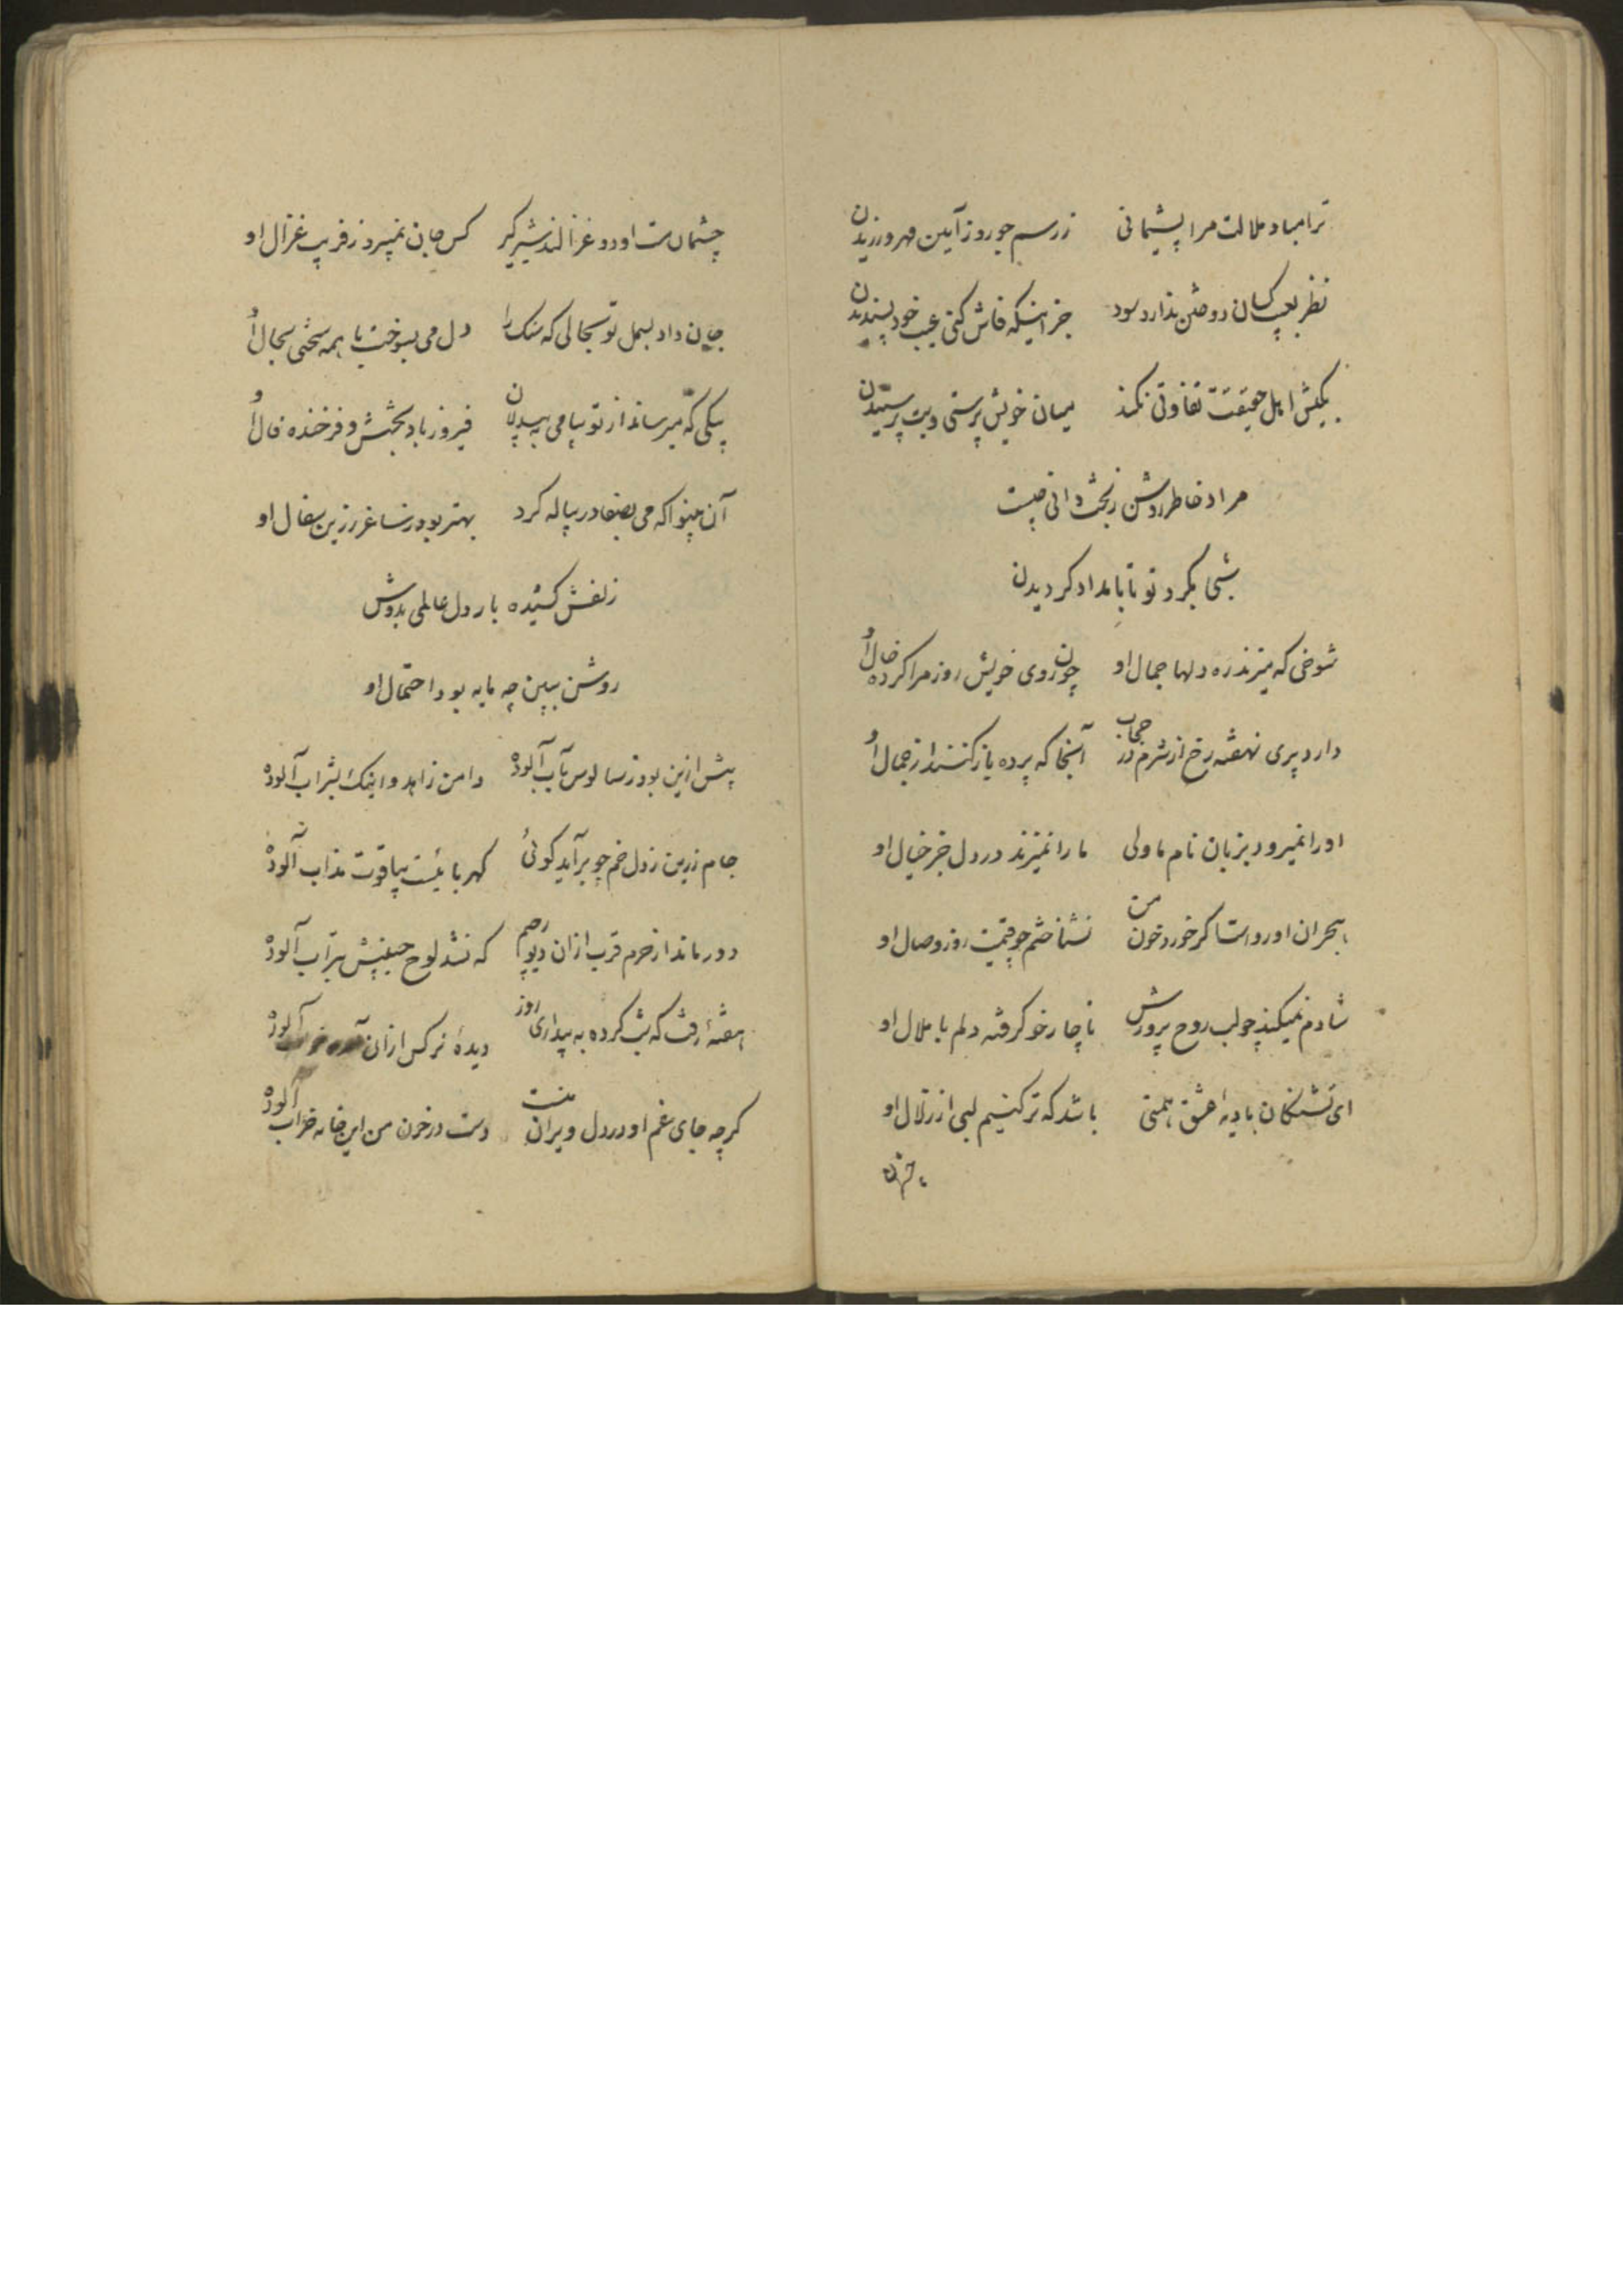 ترا مباد ملالت مرا پشیمانی زرسم جور و ز آیین مهر ورزیدن
نظر بعیب کسان دوختن ندارد سود جز اینکه فاش کنی عیب خود پسندیدن
بکیش اهل حقیقت تفاوتی نکند میان خویش پرستی و بت پرستیدن
مراد خاطر روشن ز بخت دانی چیست
شبی بکرد تو تا بامداد کردیدن
شوخی که میزند ره دلها جمال او چون روی خویش روز مرا کرده خال او
دارد پری نهفته رخ از شرم در حجاب آنجا که پرده باز کنند از جمال او
او را نمیرود بزبان نام ما ولی ما را نمیزند در دل جز خیال او
هجران او رواست اگر خورد خون من نشناختم چو قیمت روز وصال او
شادم نمیکند چو لب روح پرورش ناچار خو گرفته دلم با ملال او
ای تشنگان بادیهٔ عشق همتی باشد که تر کنیم لبی از زلال او
چشمان مست او دو غزالند شیر گیر کس جان نمیبرد ز فریب غزال او
جان داد بسمل تو بحالی که سنک را دل می بسوخت با همه سختی بحال او
پیکی که میرساند از تو پیامی به بیدلان فیروز باد بختش و فرخنده فال او
آن بینوا که می بصفا در پیاله کرد بهتر بود ز ساغر زرین سفال او
زلفش کشیده بار دل عالمی بدوش
روشن ببین چه مایه بود احتمال او
پیش ازین بود ز سالوس بآب آلوده دامن زاهد و اینک بشراب آلوده
جام زرین ز دل خم چو برآید کوئی کهربائیست بیاقوت مذاب آلوده
دور ماند از حرم قرب ازان دیو رجیم که نشد لوح جبینش بتراب آلوده
هفتهٔ رفت که شب کرده به بیداری روز دیدهٔ نرکس ازان آلوده
کرچه جای غم او در دل ویران منست دست در خون من این خانه خراب آلوده